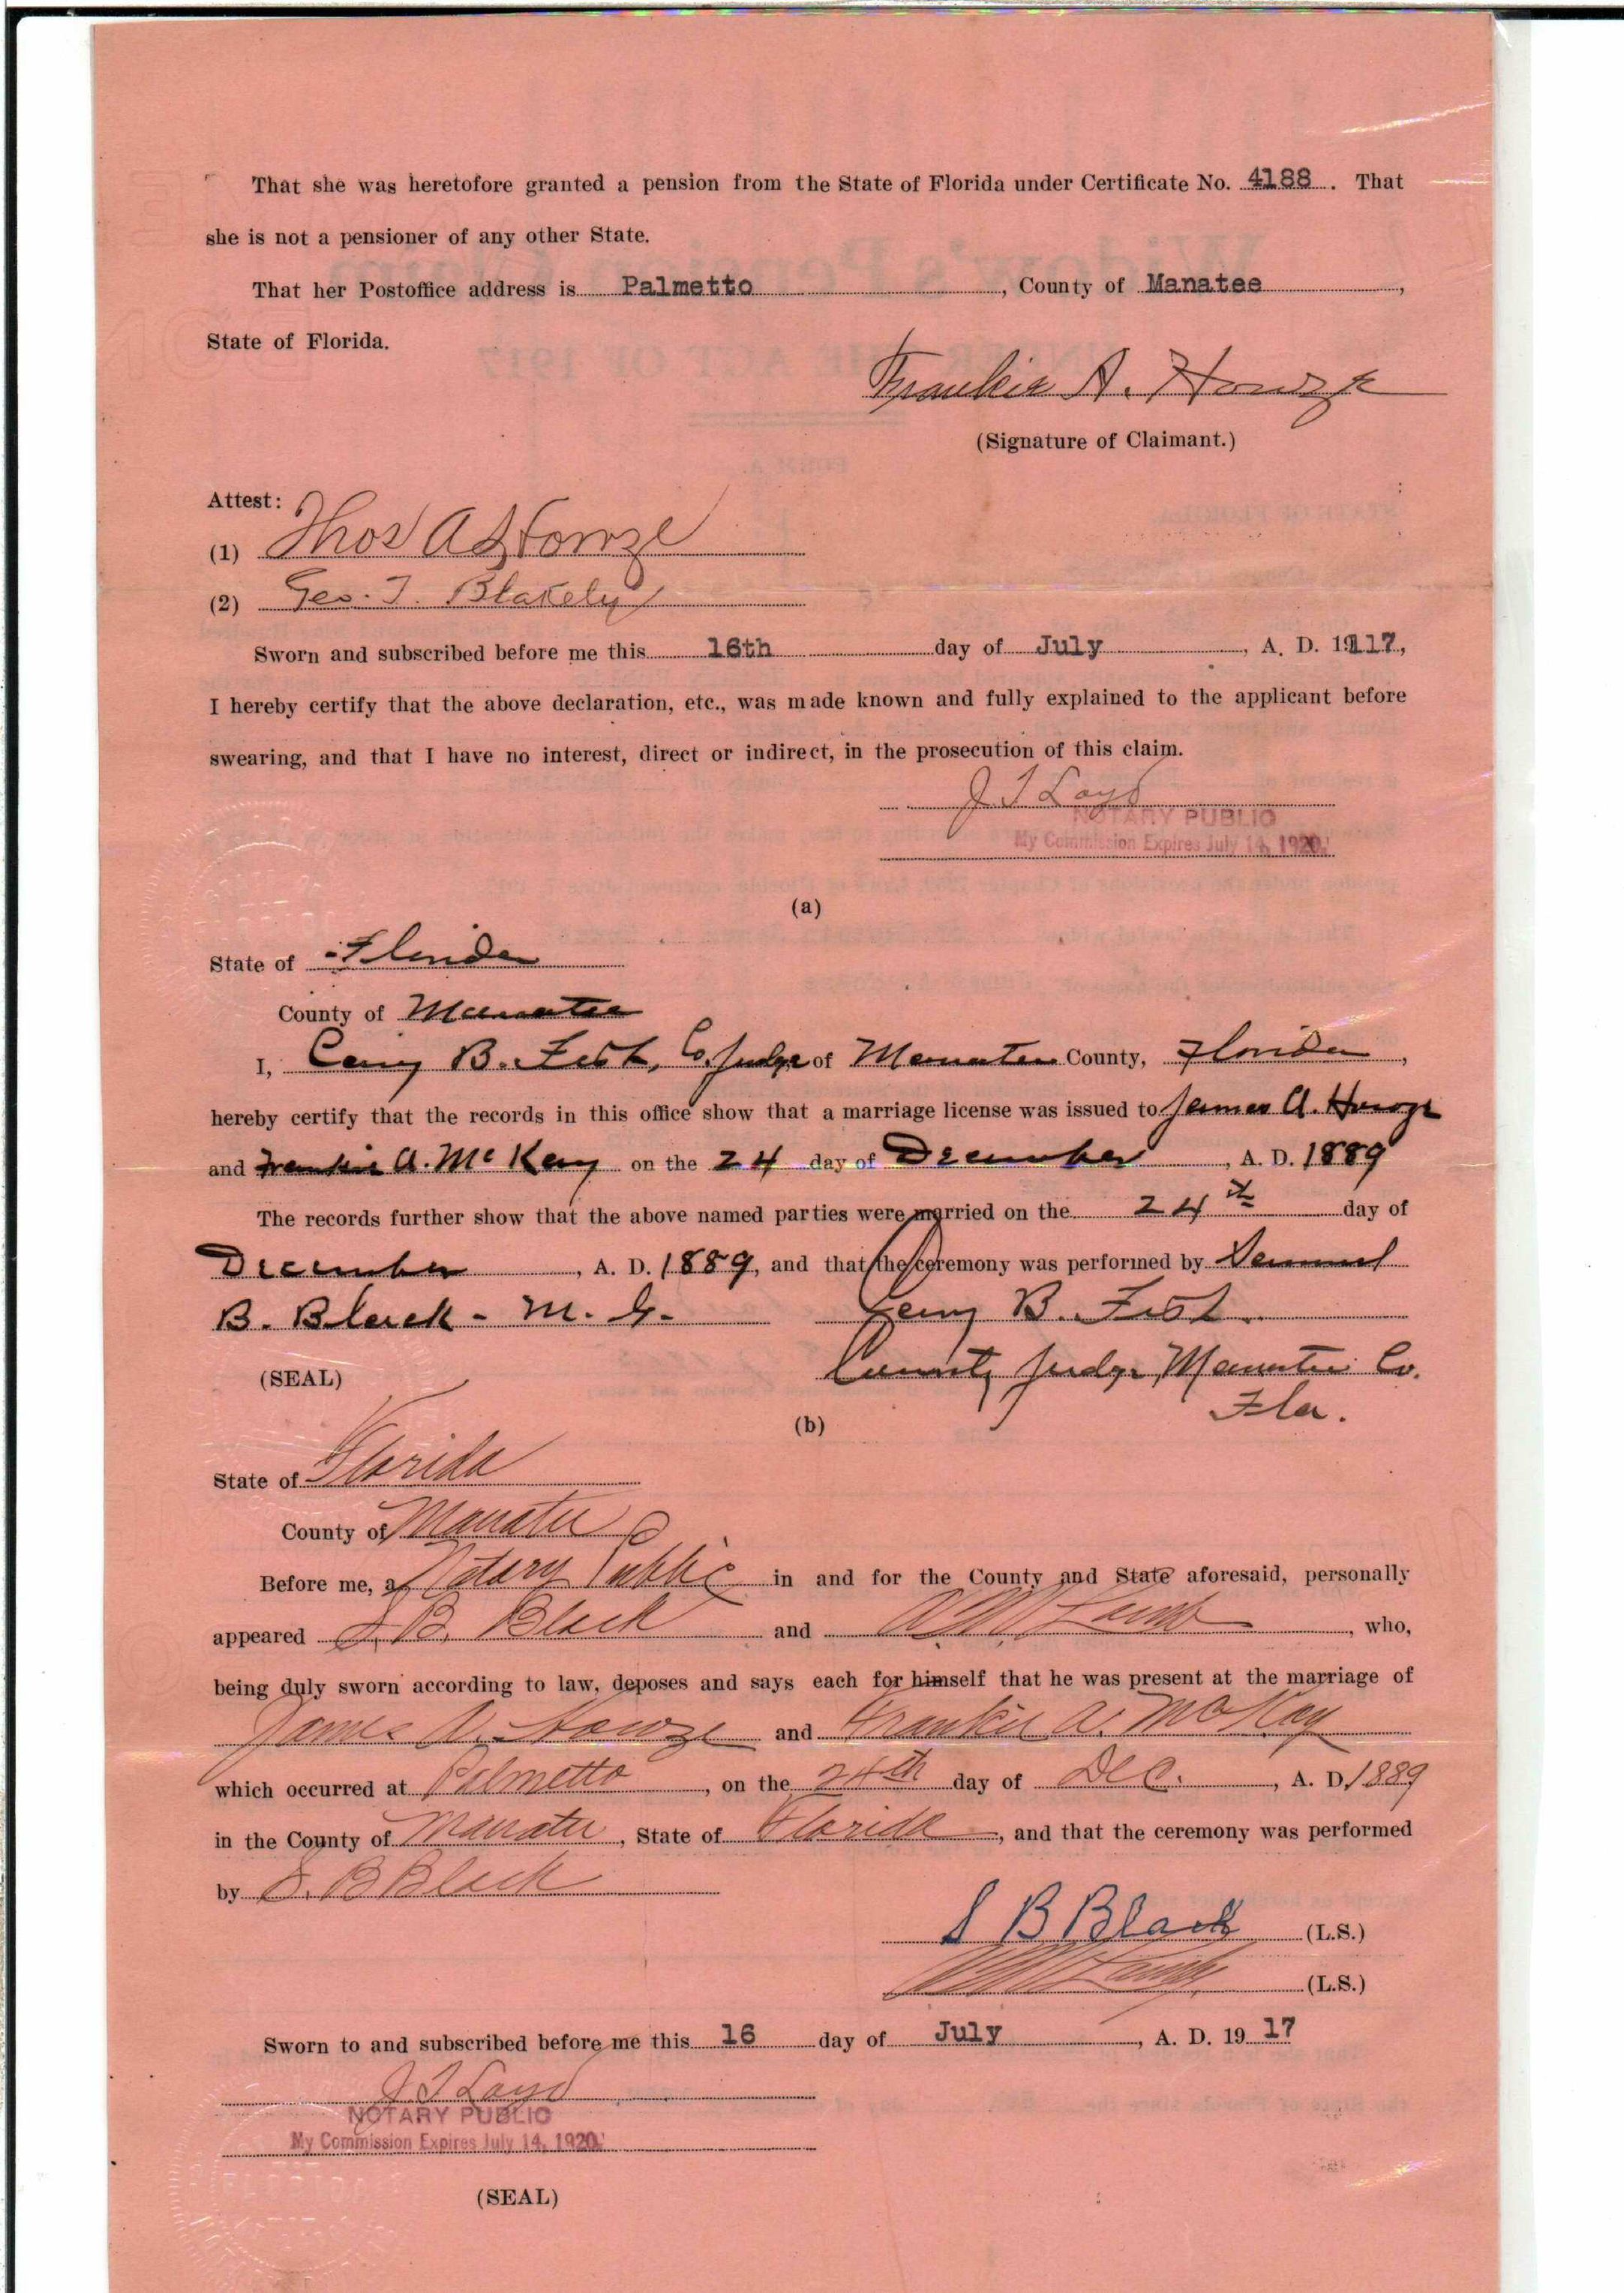 That she was heretofore granted a pension from the State of Florida under Certificate No. 4188. That
she is not a pensioner of any other State.
That her Postoffice address is Palmetto, County of Manatee,
State of Florida.
Frankie A. Howze
(Signature of Claimant.)
Attest:
(1) Thos A Howze
(2) Geo. T. Blakely
Sworn and subscribed before me this 16th day of July, A. D. 1917,
I hereby certify that the above declaration, etc., was made known and fully explained to the applicant before
swearing, and that I have no interest, direct or indirect, in the prosecution of this claim.
J T Loyd
NOTARY PUBLIC
My Commission Expires July 14, 1920.
(a)
State of Florida
County of Manatee
I, B. Fish, Co. Judge of Manatee County, Florida,
hereby certify that the records in this office show that a marriage license was issued to James A. Howze
and Frankie A. McKay on the 24 day of December, A. D. 1889
The records further show that the above named parties were married on the 24th day of
December, A. D. 1889, and that the ceremony was performed by
B. Black - M. G. B. Fish
(SEAL) County Judge, Manatee Co.
Fla.
(b)
State of Florida
County of Manatee
Before me, a Notary Public in and for the County and State aforesaid, personally
appeared S. B. Black and Lamb, who,
being duly sworn according to law, deposes and says each for himself that he was present at the marriage of
James A. Howze and Frankie A. McKay
which occurred at Palmetto, on the 24th day of Dec., A. D. 1889
in the County of Manatee, State of Florida, and that the ceremony was performed
by S. B Black
S B Black (L.S.)
Lamb (L.S.)
Sworn to and subscribed before me this 16 day of July, A. D. 19 17
J T Loyd
NOTARY PUBLIC
My Commission Expires July 14, 1920.
(SEAL)